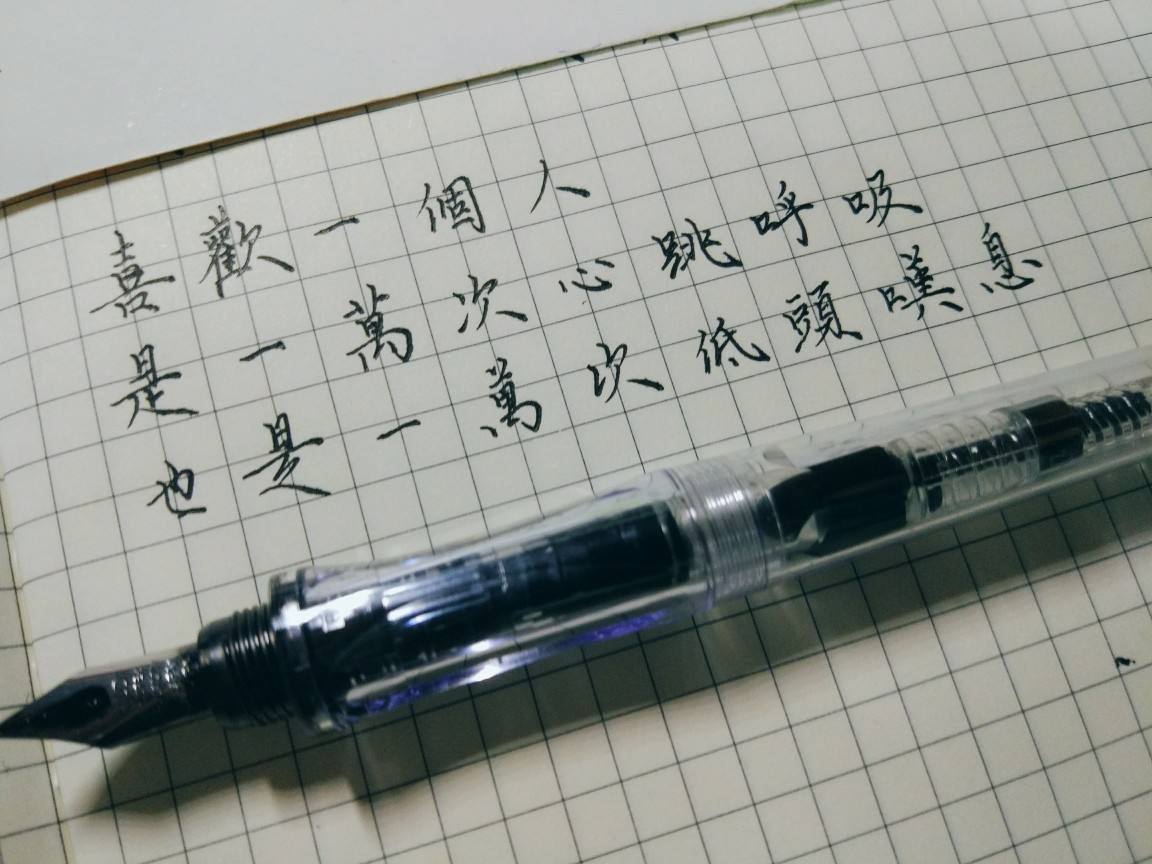 喜歡一個人
是一萬次心跳呼吸
也是一萬次低頭嘆息